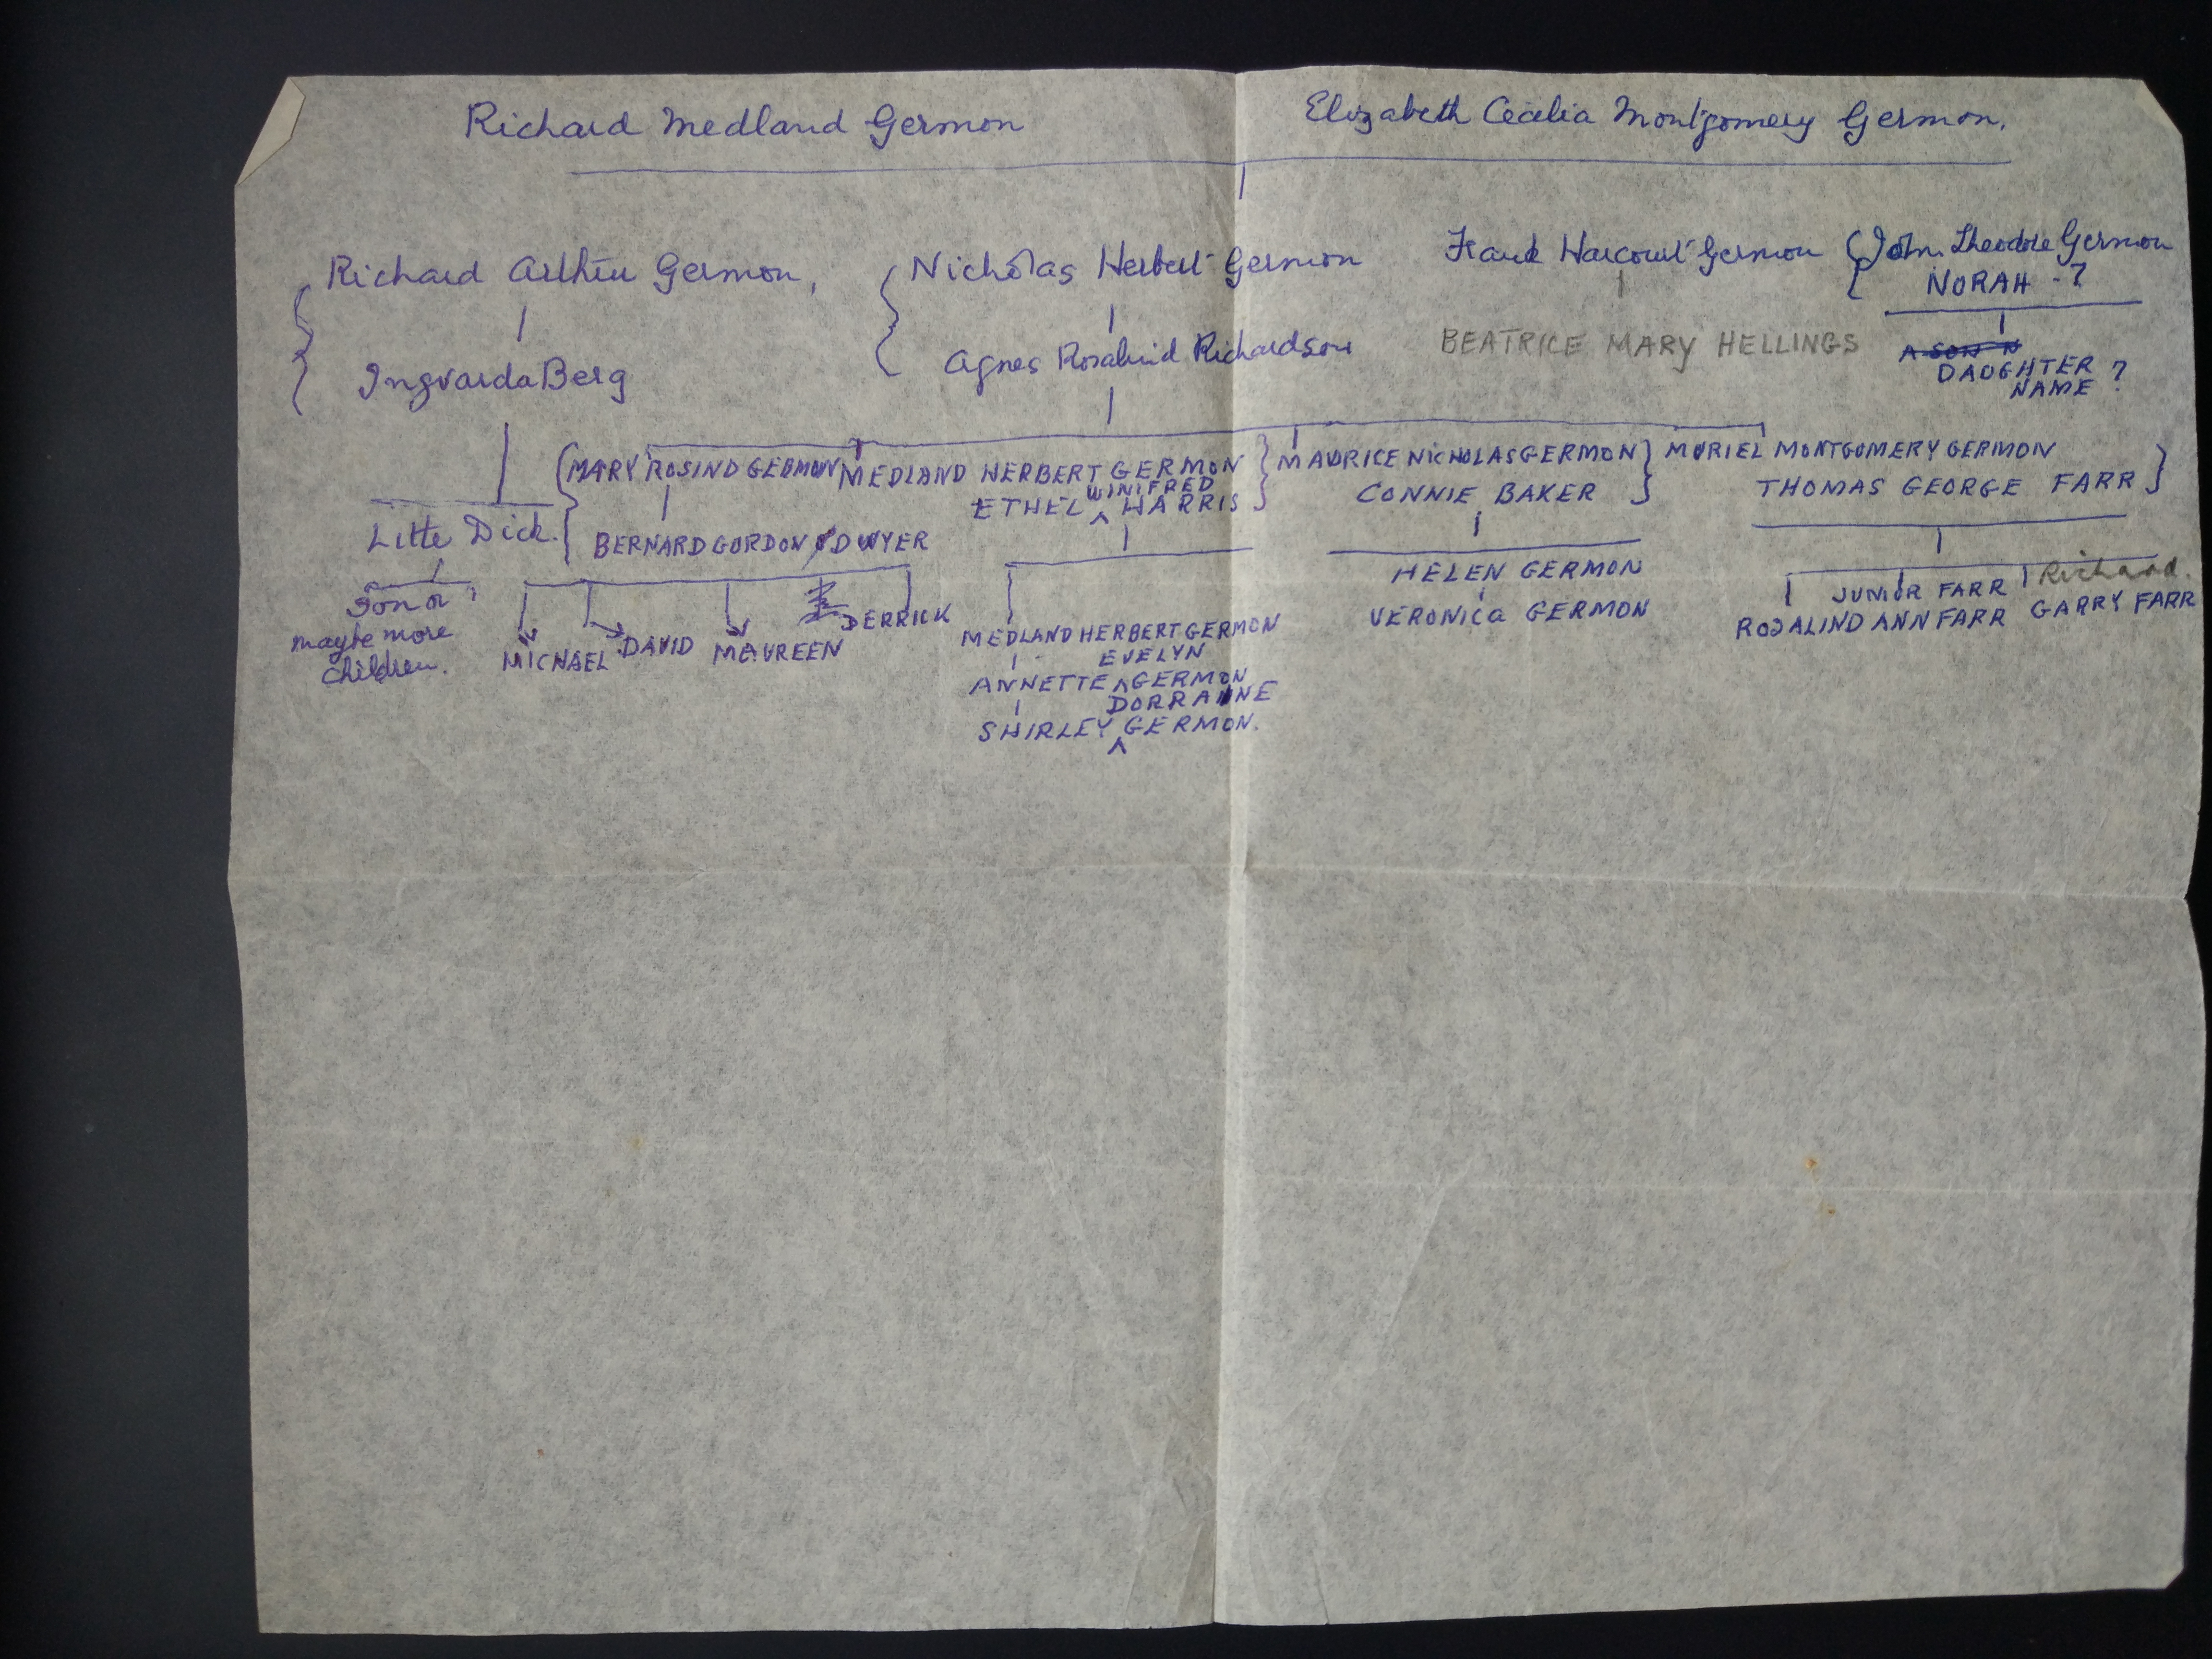 Richard Medland Germon
Elizabeth Cecilia Montgomery Germon.
Richard Arthur Germon,
Ingvarda Berg
Little Dick.
Son or ?
maybe more
children.
Nicholas Herbert Germon
Agnes Rosalind Richardson
Frank Harcourt Germon
BEATRICE MARY HELLINGS
John Theodore Germon
NORAH - ?
A SON
DAUGHTER ?
NAME
MARY ROSIND GERMON
BERNARD GORDON DWYER
MICHAEL
DAVID
MAUREEN
DERRICK
MEDLAND HERBERT GERMON
WINIFRED
ETHEL ^ HARRIS
MEDLAND HERBERT GERMON
EVELYN
ANNETTE ^ GERMON
DORRAINE
SHIRLEY ^ GERMON.
MAURICE NICHOLAS GERMON
CONNIE BAKER
HELEN GERMON
VERONICA GERMON
MURIEL MONTGOMERY GERMON
THOMAS GEORGE FARR
JUNIOR FARR
ROSALIND ANN FARR
Richard.
GARRY FARR